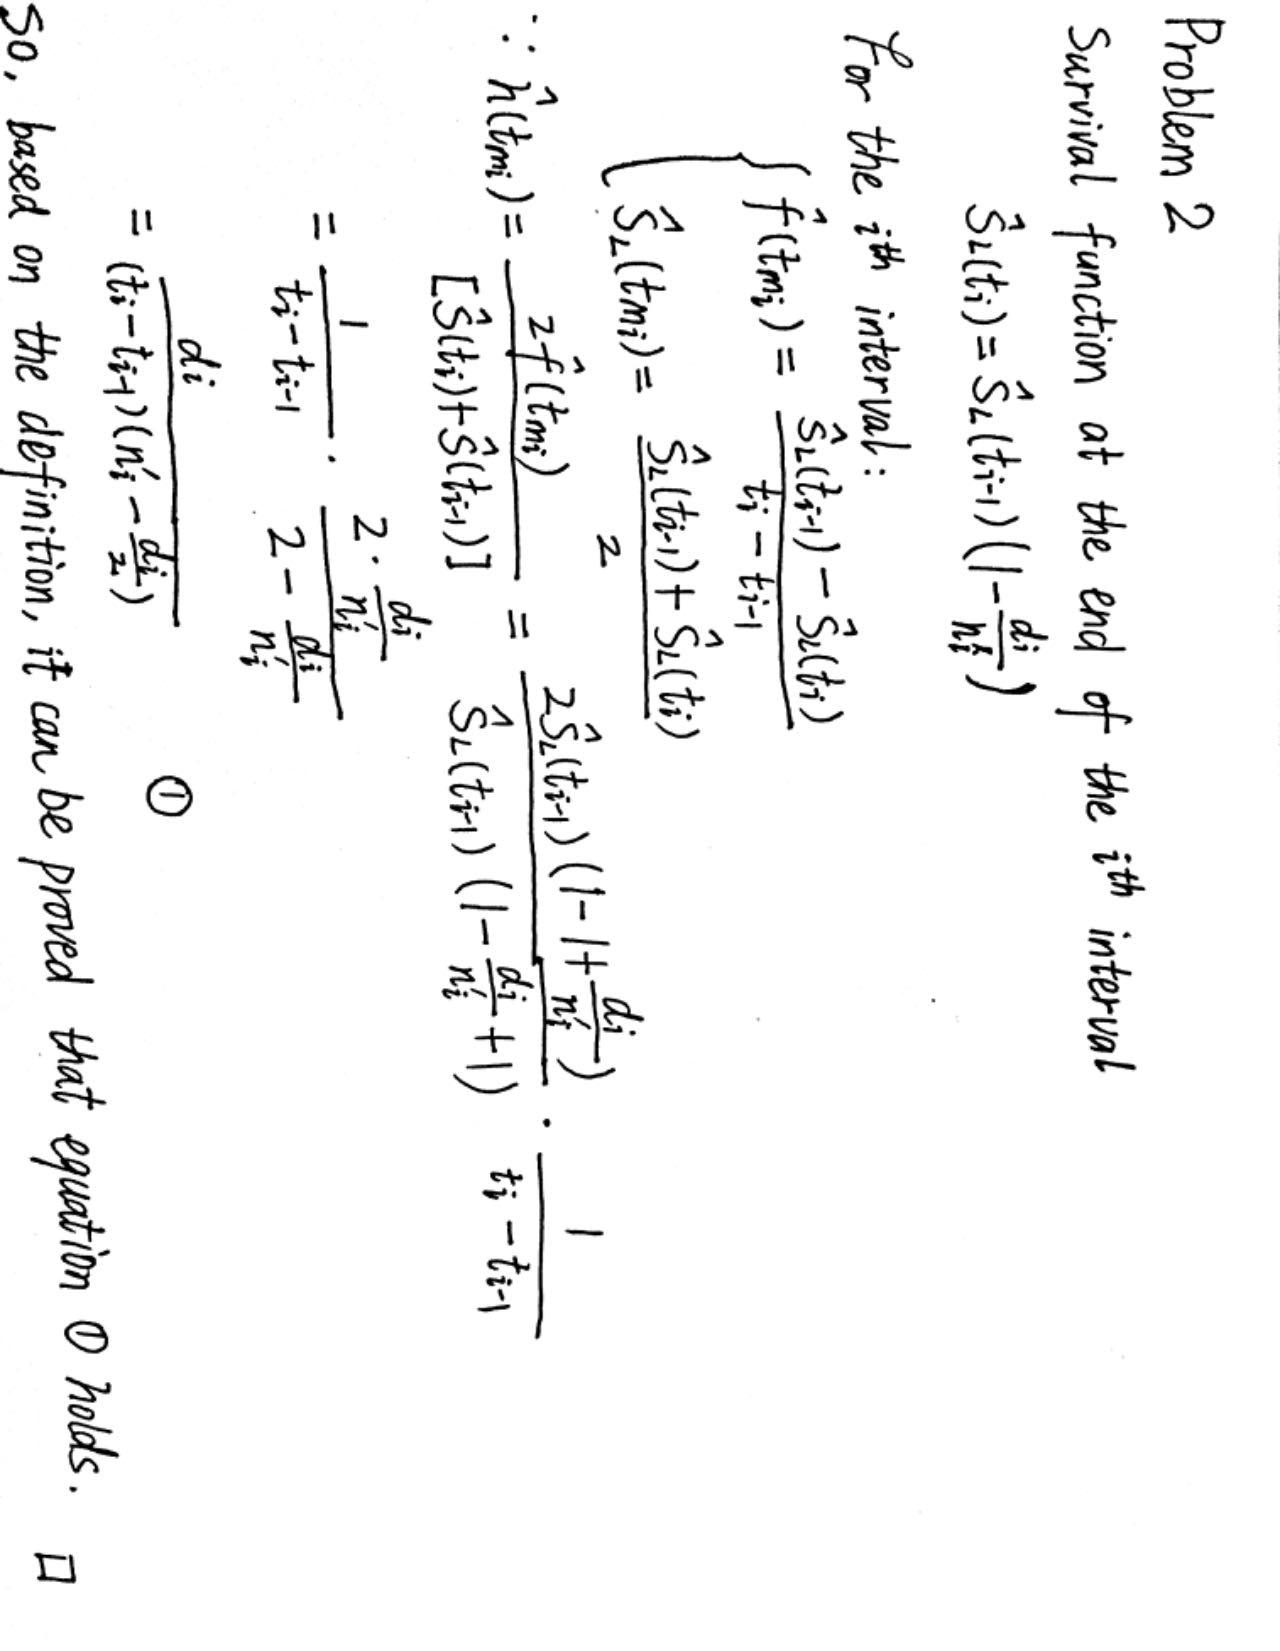 Problem 2
Survival function at the end of the ith interval
Ŝ_L(t_i) = Ŝ_L(t_{i-1}) (1 - d_i/n'_i)
For the ith interval:
{ f̂(t_{mi}) = (Ŝ_L(t_{i-1}) - Ŝ_L(t_i)) / (t_i - t_{i-1})
Ŝ_L(t_{mi}) = (Ŝ_L(t_{i-1}) + Ŝ_L(t_i)) / 2
∵ ĥ(t_{mi}) = 2f̂(t_{mi}) / [Ŝ(t_i) + Ŝ(t_{i-1})] = 2Ŝ_L(t_{i-1}) (1 - 1 + d_i/n'_i) / Ŝ_L(t_{i-1}) (1 - d_i/n'_i + 1) · 1 / (t_i - t_{i-1})
= 1 / (t_i - t_{i-1}) · (2 · d_i/n'_i) / (2 - d_i/n'_i)
= d_i / (t_i - t_{i-1})(n'_i - d_i/2) ①
So, based on the definition, it can be proved that equation ① holds. □